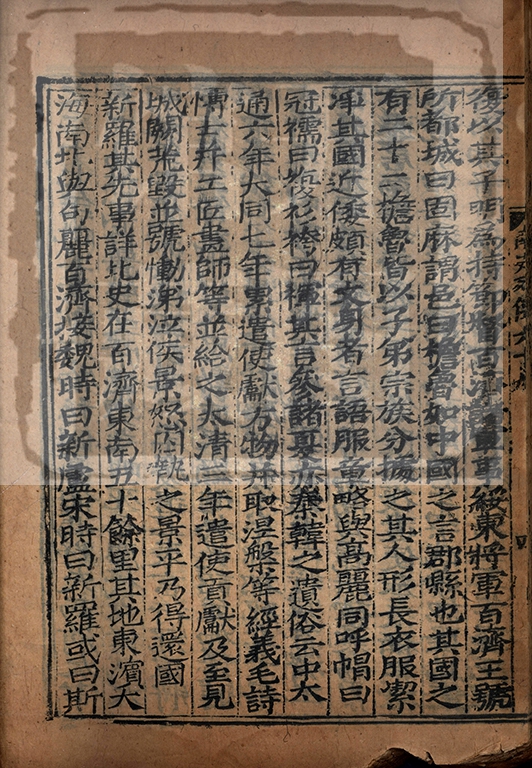 復以其子明爲持節督百濟諸軍事綏東將軍百濟王號
所都城曰固麻謂邑曰檐魯如中國之言郡縣也其國之
有二十二檐魯皆以子弟宗族分據之其人形長衣服潔
淨其國近倭頗有文身者言語服章略與高麗同呼帽曰
冠襦曰複衫袴曰褌其言參諸夏亦秦韓之遺俗云中大
通六年大同七年累遣使獻方物并取涅槃等經義毛詩
博士并工匠畫師等並給之太清三年遣使貢獻及至見
城闕荒毀並號慟涕泣侯景怒囚執之景平乃得還國
新羅其先事詳北史在百濟東南五十餘里其地東濱大
海南北與句麗百濟接魏時曰新盧宋時曰新羅或曰斯